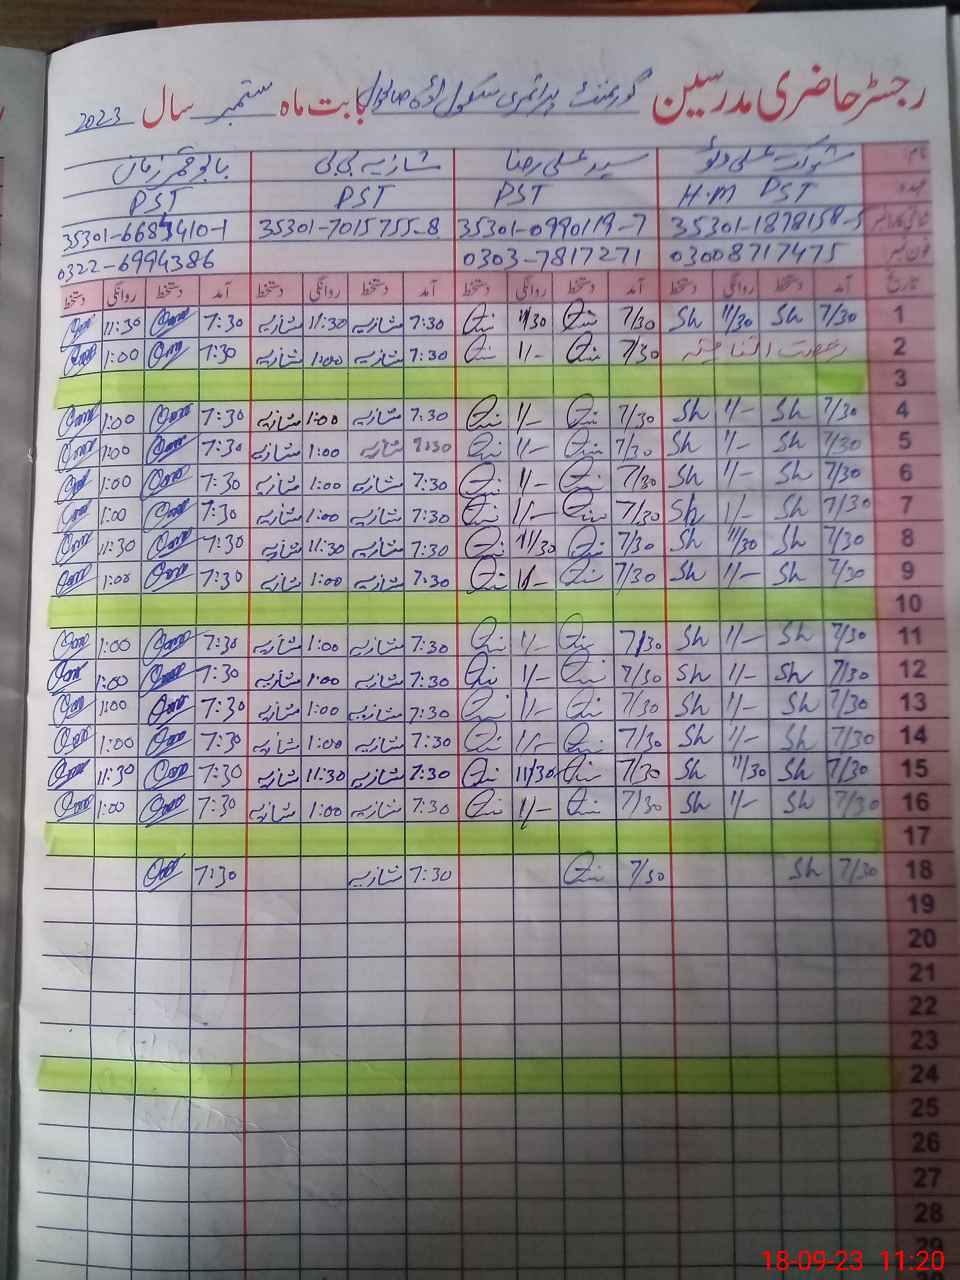 رجسٹر حاضری مدرسین گورنمنٹ پرائمری سکول بابت ماہ ستمبر سال 2023
نام شوکت علی سید علی رضا شازیہ بی بی
عہدہ H.M PST PST PST PST
35301-1878158-5 35301-0990119-7 35301-7015755-8 35301-6684410-1
فون نمبر 03008717475 0303-7817271 0322-6994386
تاریخ آمد دستخط روانگی دستخط آمد دستخط روانگی دستخط آمد دستخط روانگی دستخط آمد دستخط روانگی دستخط
1 7/30 Sh 11/30 Sh 7/30 11/30 7:30 شازیہ 11:30 شازیہ 7:30 11:30
2 رخصت 7/30 1/- 7:30 شازیہ 1:00 شازیہ 7:30 1:00
3
4 7/30 Sh 1/- Sh 7/30 1/- 7:30 شازیہ 1:00 شازیہ 7:30 1:00
5 7/30 Sh 1/- Sh 7/30 1/- شازیہ 1:00 شازیہ 7:30 1:00
6 7/30 Sh 1/- Sh 7/30 1/- 7:30 شازیہ 1:00 شازیہ 7:30 1:00
7 7/30 Sh 1/- Sh 7/30 1/- 7:30 شازیہ 1:00 شازیہ 7:30 1:00
8 7/30 Sh 11/30 Sh 7/30 11/30 7:30 شازیہ 11:30 شازیہ 7:30 11:30
9 7/30 Sh 1/- Sh 7/30 1/- 7:30 شازیہ 1:00 شازیہ 7:30 1:00
10
11 7/30 Sh 1/- Sh 7/30 1/- 7:30 شازیہ 1:00 شازیہ 7:30 1:00
12 7/30 Sh 1/- Sh 7/30 1/- 7:30 شازیہ 1:00 شازیہ 7:30 1:00
13 7/30 Sh 1/- Sh 7/30 1/- 7:30 شازیہ 1:00 شازیہ 7:30 1:00
14 7/30 Sh 1/- Sh 7/30 1/- 7:30 شازیہ 1:00 شازیہ 7:30 1:00
15 7/30 Sh 11/30 Sh 7/30 11/30 7:30 شازیہ 11:30 شازیہ 7:30 11:30
16 7/30 Sh 1/- Sh 7/30 1/- 7:30 شازیہ 1:00 شازیہ 7:30 1:00
17
18 7/30 Sh 7/30 7:30 شازیہ 7:30
19
20
21
22
23
24
25
26
27
28
29
18-09-23 11:20